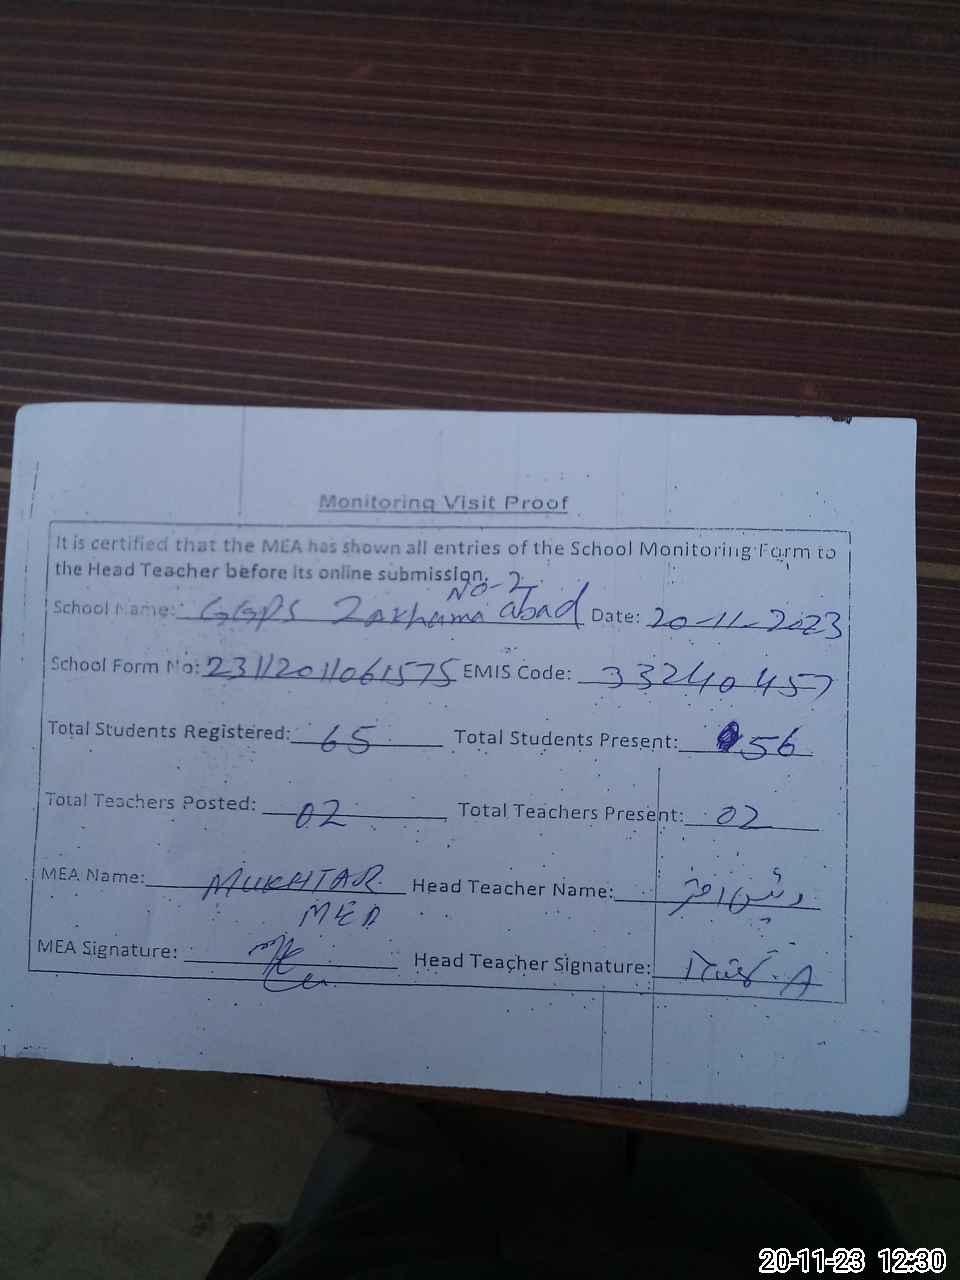 Monitoring Visit Proof
It is certified that the MEA has shown all entries of the School Monitoring Form to
the Head Teacher before its online submission.
No-2
School Name: GGPS Zakhama abad Date: 20-11-2023
School Form No: 2311201061575 EMIS Code: 33240457
Total Students Registered: 65 Total Students Present: 56
Total Teachers Posted: 02 Total Teachers Present: 02
MEA Name: MUKHTAR Head Teacher Name:
MED
MEA Signature: Head Teacher Signature:
20-11-23 12:30